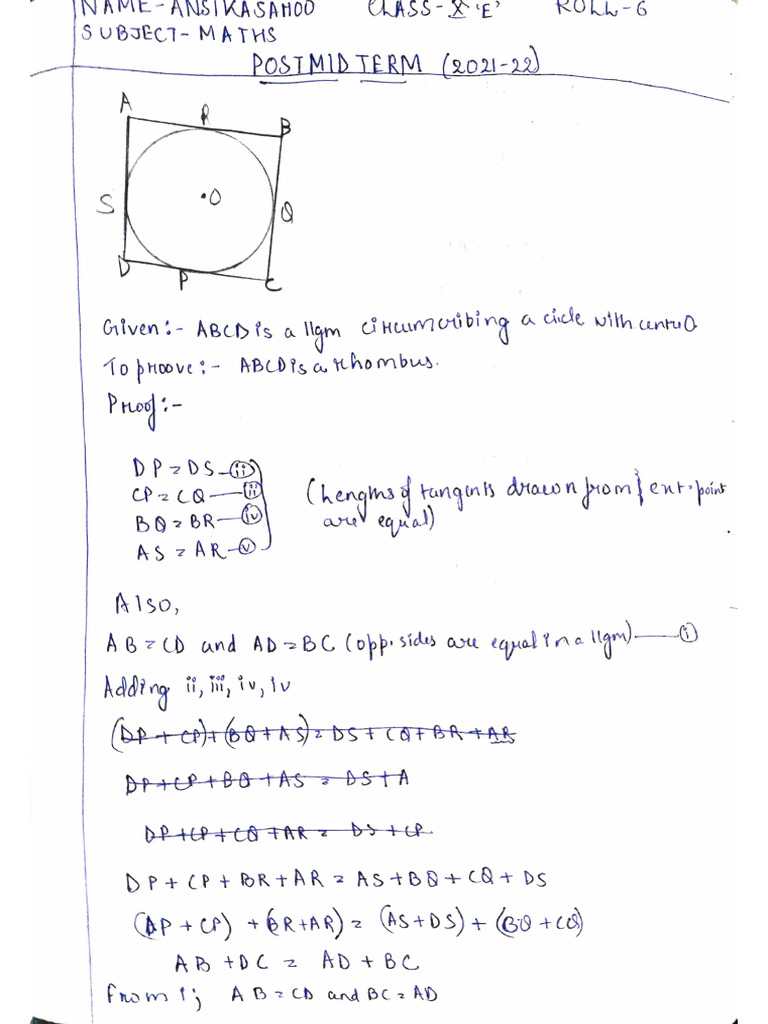 NAME-ANSIKA SAHOO CLASS-X 'E' ROLL-6
SUBJECT-MATHS
POSTMID TERM (2021-22)
A
R
B
S
.O
Q
D
P
C
Given:- ABCD is a llgm circumcribing a circle with centre O
To proove:- ABCD is a rhombus.
Proof:-
DP = DS - ii
CP = CQ - ii
BQ = BR - iv
AS = AR - v
(Lengths of tangents drawn from ext. point
are equal)
Also,
AB = CD and AD = BC (opp. sides are equal in a llgm) - i
Adding ii, iii, iv, iv
(DP + CP) + (BQ + AS) = DS + CQ + BR + AR
DP + CP + BQ + AS = DS + A
DP + CP + CQ + AR = DS + CP
DP + CP + BR + AR = AS + BQ + CQ + DS
(DP + CP) + (BR + AR) = (AS + DS) + (BQ + CQ)
AB + DC = AD + BC
from i; AB = CD and BC = AD